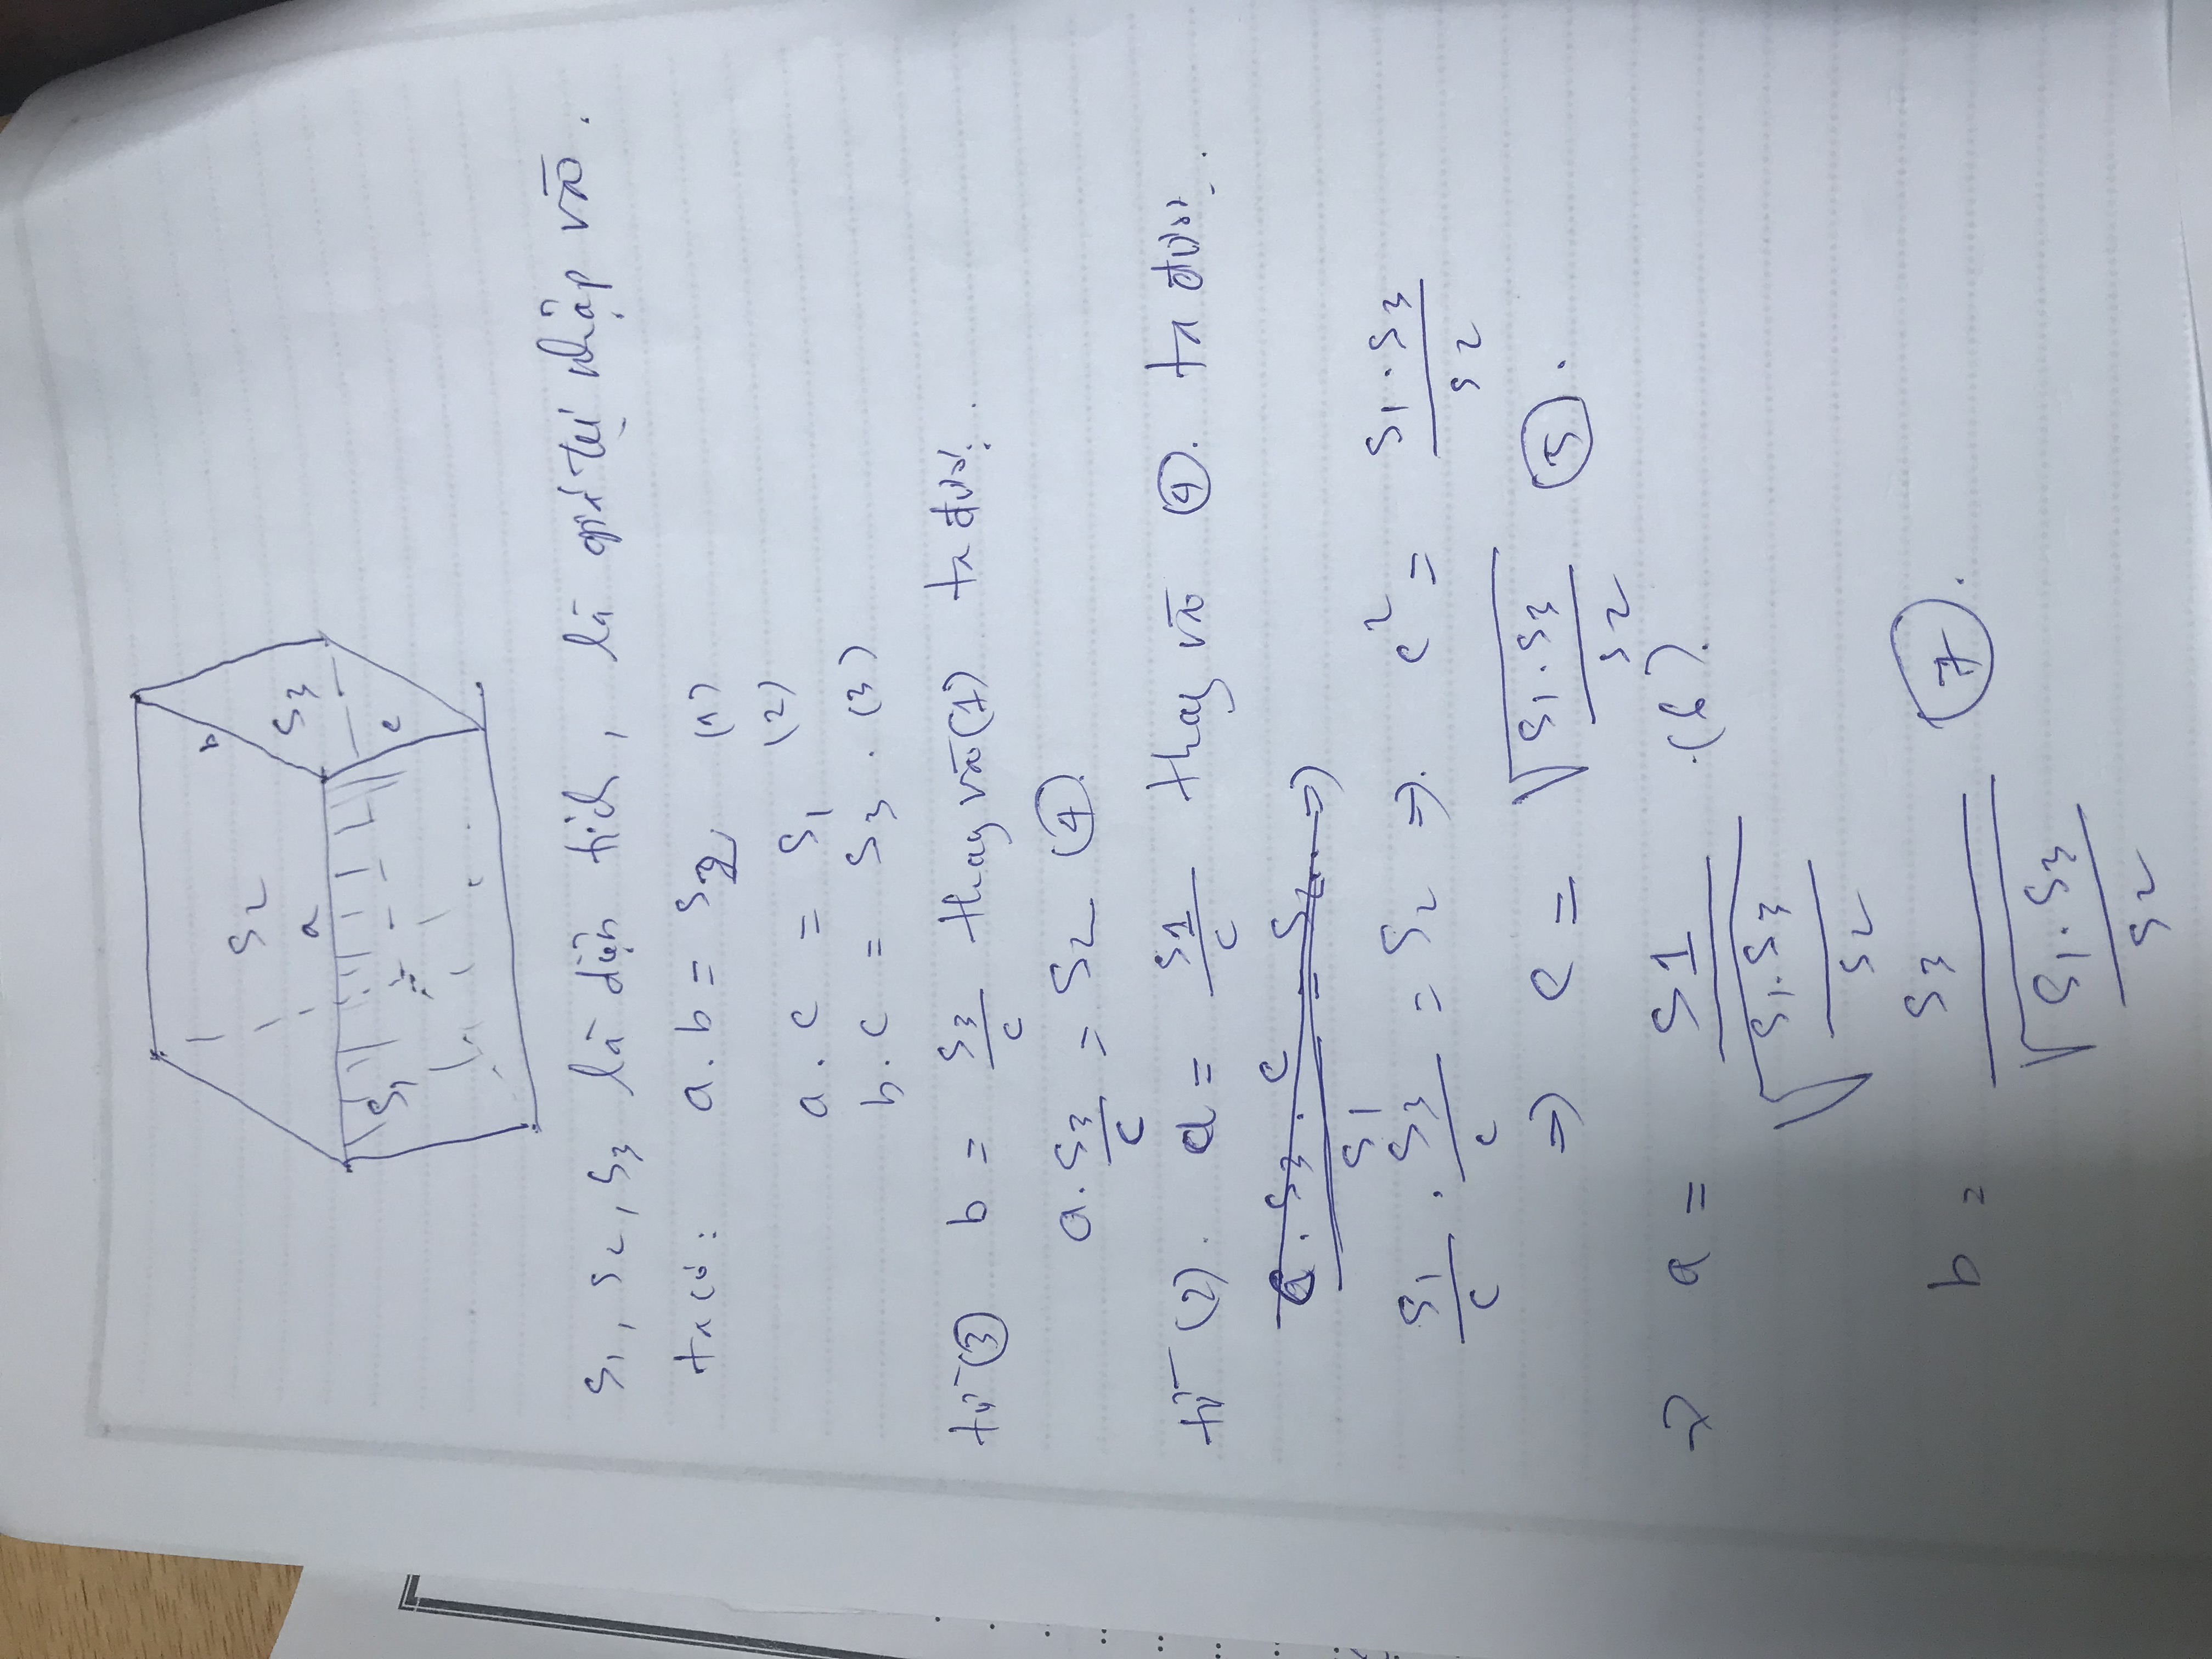 b
S2
S3
a
S1
c
S1, S2, S3 là diện tích, là giá trị nhập vào.
ta có: a.b = S2 (1)
a.c = S1 (2)
b.c = S3. (3)
từ (3) b = S3/c thay vào (1) ta được.
a. S3/c = S2 (4).
từ (2). a = S1/c thay vào (4). ta được.
a. S3. c / S1 = S2. =>
S1/c . S3/c = S2 =>. c² = S1.S3/S2
=> c = √(S1.S3/S2) (5).
=> a = S1/√(S1.S3/S2) .(6).
b = S3/√(S1.S3/S2) (7).